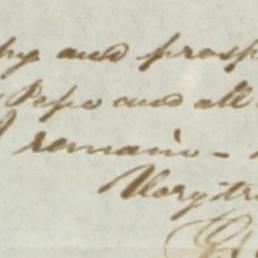 and prosp
Pepo and all
I remain -
Very tr